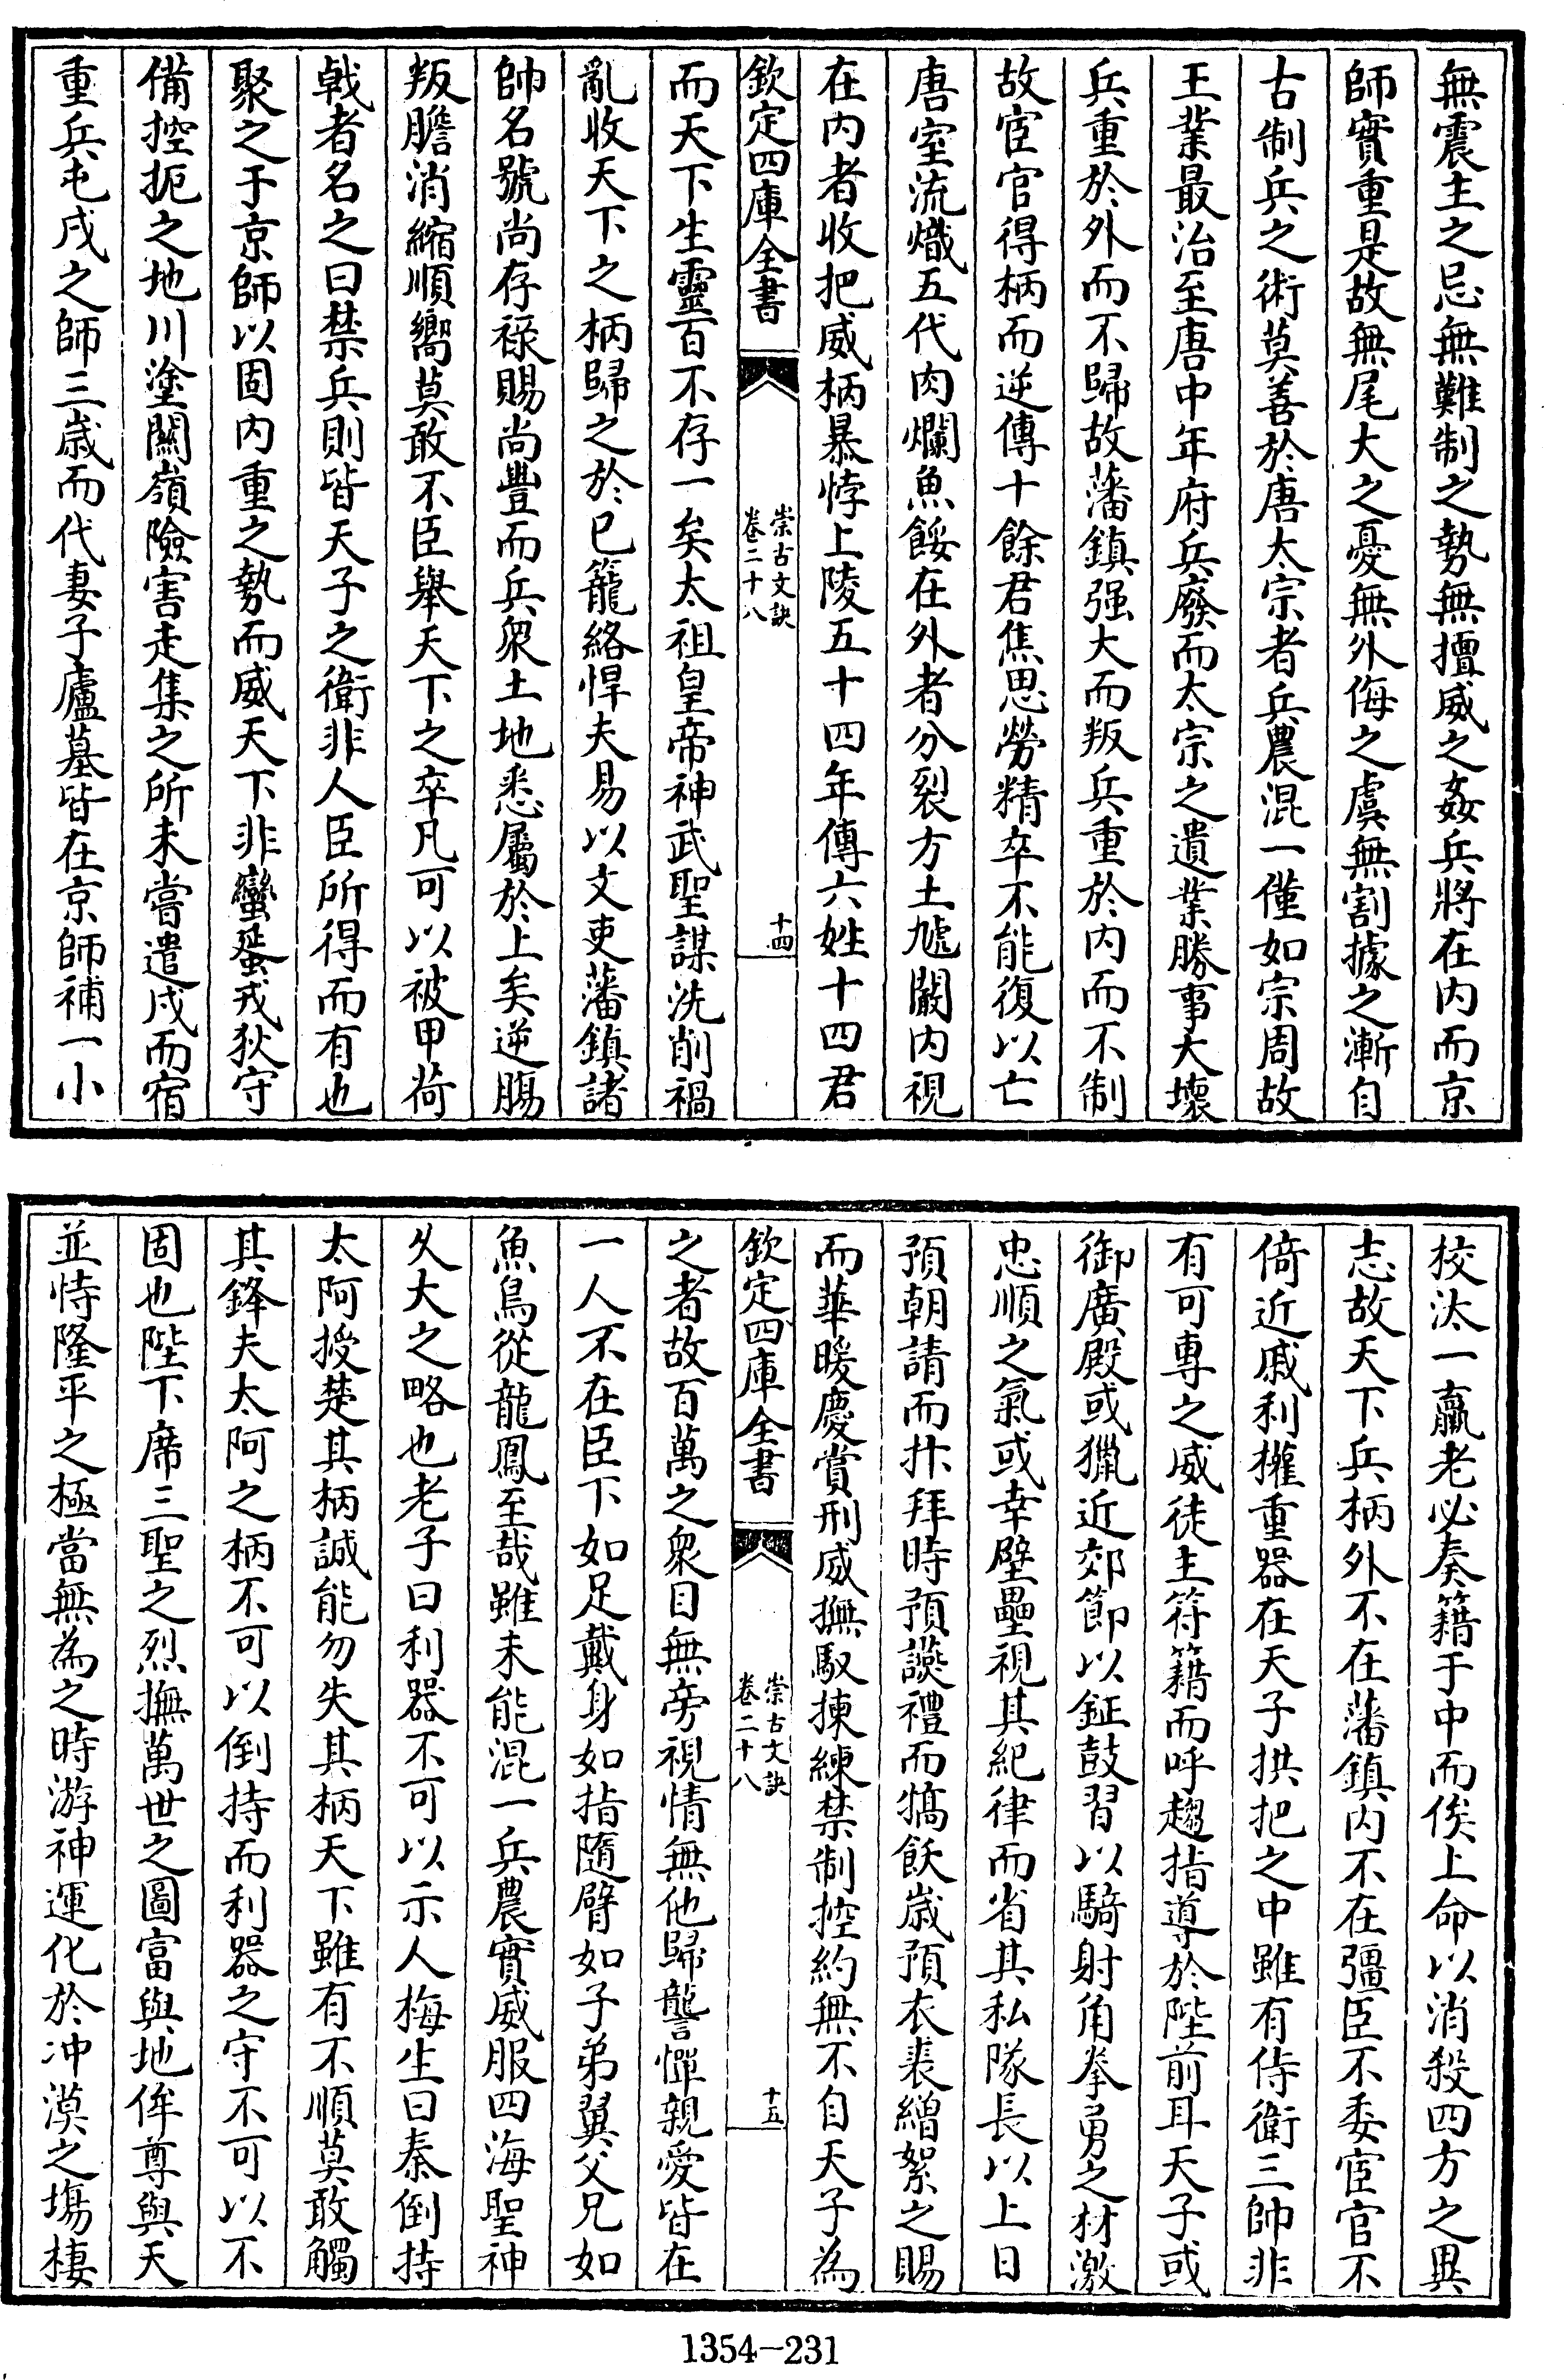 無震主之忌無難制之勢無擅威之姦兵將在内而京
師實重是故無尾大之憂無外侮之虞無割據之漸自
古制兵之術莫善於唐太宗者兵農混一僅如宗周故
王業最治至唐中年府兵廢而太宗之遺業勝事大壞
兵重於外而不歸故藩鎮强大而叛兵重於内而不制
故宦官得柄而逆傳十餘君焦思勞精卒不能復以亡
唐室流熾五代肉爛魚餒在外者分裂方土虓闞内視
在内者收把威柄暴悖上陵五十四年傳六姓十四君
欽定四庫全書
崇古文訣
卷二十八
十四
而天下生靈百不存一矣太祖皇帝神武聖謀洗削禍
亂收天下之柄歸之於已籠絡悍夫易以文吏藩鎮諸
帥名號尚存祿賜尚豐而兵衆土地悉屬於上矣逆腸
叛膽消縮順嚮莫敢不臣舉天下之卒凡可以被甲荷
戟者名之曰禁兵則皆天子之衛非人臣所得而有也
聚之于京師以固内重之勢而威天下非蠻蜑戎狄守
備控扼之地川塗關嶺險害走集之所未嘗遣戍而宿
重兵屯戍之師三歲而代妻子廬墓皆在京師補一小
校汰一羸老必奏籍于中而俟上命以消殺四方之異
志故天下兵柄外不在藩鎮内不在彊臣不委宦官不
倚近戚利權重器在天子拱把之中雖有侍衛三帥非
有可專之威徒主符籍而呼趨指導於陛前耳天子或
御廣殿或獵近郊節以鉦鼓習以騎射角拳勇之材激
忠順之氣或幸壁壘視其紀律而省其私隊長以上日
預朝請而抃拜時預讌禮而犒飫歲預衣裘繒絮之賜
而華暖慶賞刑威撫馭揀練禁制控約無不自天子為
欽定四庫全書
崇古文訣
卷二十八
十五
之者故百萬之衆目無旁視情無他歸讋憚親愛皆在
一人不在臣下如足戴身如指隨臂如子弟翼父兄如
魚鳥從龍鳳至哉雖未能混一兵農實威服四海聖神
久大之略也老子曰利器不可以示人梅生曰秦倒持
太阿授楚其柄誠能勿失其柄天下雖有不順莫敢觸
其鋒夫太阿之柄不可以倒持而利器之守不可以不
固也陛下席三聖之烈撫萬世之圖富與地侔尊與天
並恃隆平之極當無為之時游神運化於冲漠之塲棲
1354-231